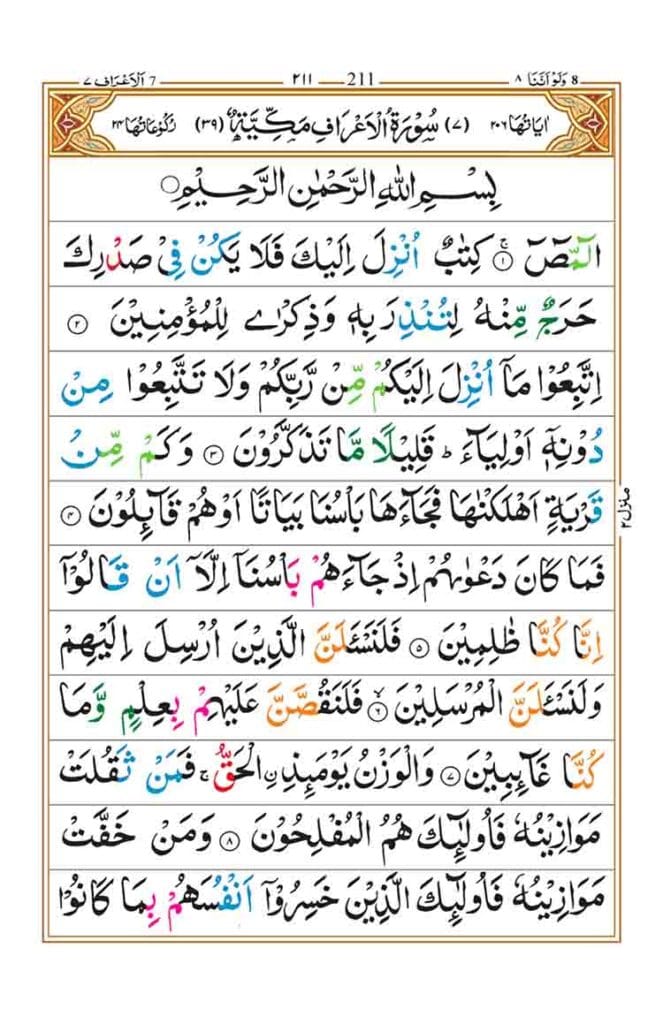 7 اَلْاَعْرَاف ٧
٢١١ 211
8 وَلَوْ اَنَّنَا ٨
اٰيَاتُهَا ٢٠٦ (٧) سُوْرَةُ الْاَعْرَافِ مَكِّيَّةٌ (٣٩) رُكُوْعَاتُهَا ٢٤
بِسْمِ اللّٰهِ الرَّحْمٰنِ الرَّحِيْمِ○
الٓمّٓصٓ ۚ‏ ﴿١﴾ كِتٰبٌ اُنْزِلَ اِلَيْكَ فَلَا يَكُنْ فِىْ صَدْرِكَ
حَرَجٌ مِّنْهُ لِتُنْذِرَ بِهٖ وَذِكْرٰى لِلْمُؤْمِنِيْنَ ﴿٢﴾
اِتَّبِعُوْا مَاۤ اُنْزِلَ اِلَيْكُمْ مِّنْ رَّبِّكُمْ وَلَا تَتَّبِعُوْا مِنْ
دُوْنِهٖۤ اَوْلِيَآءَ ؕ قَلِيْلًا مَّا تَذَكَّرُوْنَ ﴿٣﴾ وَكَمْ مِّنْ
قَرْيَةٍ اَهْلَكْنٰهَا فَجَآءَهَا بَاْسُنَا بَيَاتًا اَوْهُمْ قَآئِلُوْنَ ﴿٤﴾
منزل ٢
فَمَا كَانَ دَعْوٰىهُمْ اِذْ جَآءَهُمْ بَاْسُنَاۤ اِلَّاۤ اَنْ قَالُوْۤا
اِنَّا كُنَّا ظٰلِمِيْنَ ﴿٥﴾ فَلَنَسْـَٔلَنَّ الَّذِيْنَ اُرْسِلَ اِلَيْهِمْ
وَلَنَسْـَٔلَنَّ الْمُرْسَلِيْنَ ۙ ﴿٦﴾ فَلَنَقُصَّنَّ عَلَيْهِمْ بِعِلْمٍ وَّمَا
كُنَّا غَآئِبِيْنَ ﴿٧﴾ وَالْوَزْنُ يَوْمَئِذِ ۨالْحَقُّ ۚ فَمَنْ ثَقُلَتْ
مَوَازِيْنُهٗ فَاُولٰٓئِكَ هُمُ الْمُفْلِحُوْنَ ﴿٨﴾ وَمَنْ خَفَّتْ
مَوَازِيْنُهٗ فَاُولٰٓئِكَ الَّذِيْنَ خَسِرُوْۤا اَنْفُسَهُمْ بِمَا كَانُوْا